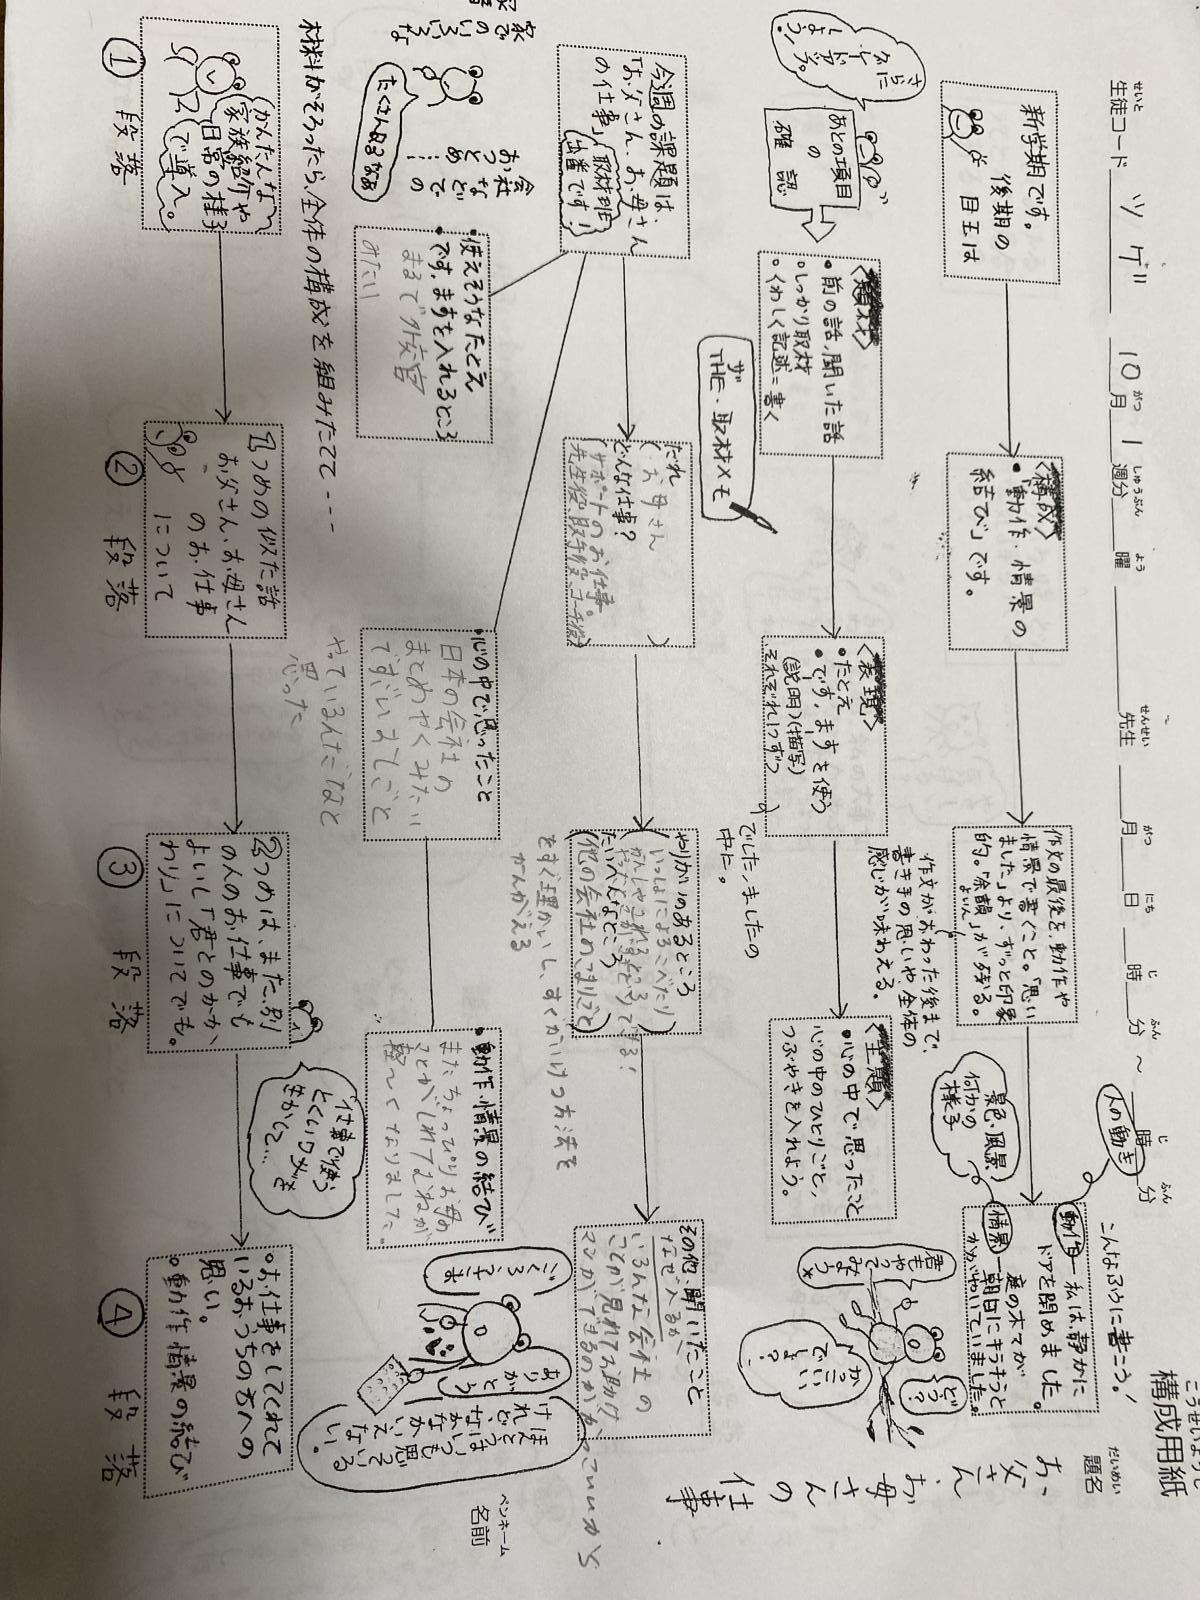 構成用紙
こうせいようし
だいめい
題名
お父さん
お母さんの
仕事
ペンネーム
名前
せいと
生徒コード ツゲ
10月1週分
がつ しゅうぶん
曜
よう
先生
せんせい
月 日 時 分 ～ 時 分
がつ にち じ ふん じ ふん
新学期です。
後期の
目玉は
〈構成〉
・「動作・情景の
結び」です。
作文の最後を、動作や
情景で書くこと。「思い
ました」より、ずっと印象
的。「余韻」が残る。
よいん
作文がおわった後まで、
書き手の思いや、全体の
感じが味わえる。
人の動き
景色・風景
何かの
様子
こんなふうに書こう!
動作―私は、静かに
ドアを閉めました。
情景―庭の木々が
朝日にキラキラと
かがやいていました。
さらに
グレードアップ
しよう!
あとの項目
の
確認
〈題材〉
・前の話、聞いた話
・しっかり取材
・くわしく記述=書く
ザ
THE・取材メモ
〈表現〉
・たとえ
・です、ますを使う
(説明)(描写)
それぞれ1つずつ
でした、ましたの
中に。
〈主題〉
・心の中で思ったこと
心の中のひとりごと、
つぶやきを入れよう。
君もやって
みよう
どう?
かっこいい
でしょ?
今週の課題は、
「お父さん、お母さん
の仕事」取材班
出番です!
家での
いろいろな
会社
などでの
おつとめ…
たくさんあるなあ
だれ
(お母さん)
どんな仕事?
(サポートのお仕事。
先生役、取締役、コーチ役)
やりがいのあるところ
(いっしょによろこべたり
かんしゃされるところ)
たいへんなところ
(他の会社のこまりごと)
をすぐ理かいし、すぐかいけつ方法を
かんがえる
その他、聞いたこと
なぜ入るか
いろんな会社の
ことが見れて、助け
マンができるのがかっこいいから
・使えそうなたとえ
です、ますを入れるところ
まるで外交官
みたい
・心の中で思ったこと
日本の会社の
まとめやくみたい
ですごいおしごと
やっているんだなと
思った
・動作・情景の結び
またちょっぴりお母の
ことがしれてむねが
軽くなりました。
ごくろうさま
ありがとう
ほんとうはいつも思っている
けれど、なかなかいえない。
材料がそろったら、全体の構成を組みたてて----
かんたんな
家族紹介や
日常の様子
で導入。
① 段落
1つめの似た話
お父さん、お母さん
のお仕事
について
② 段落
2つめは、また、別
の人のお仕事でも
よいし「君とのかか
わり」についてでも。
③ 段落
仕事で使う
とくいワザを
生かして…
・お仕事をしてくれて
いるおうちの方への
思い。
・動作・情景の結び
④ 段落